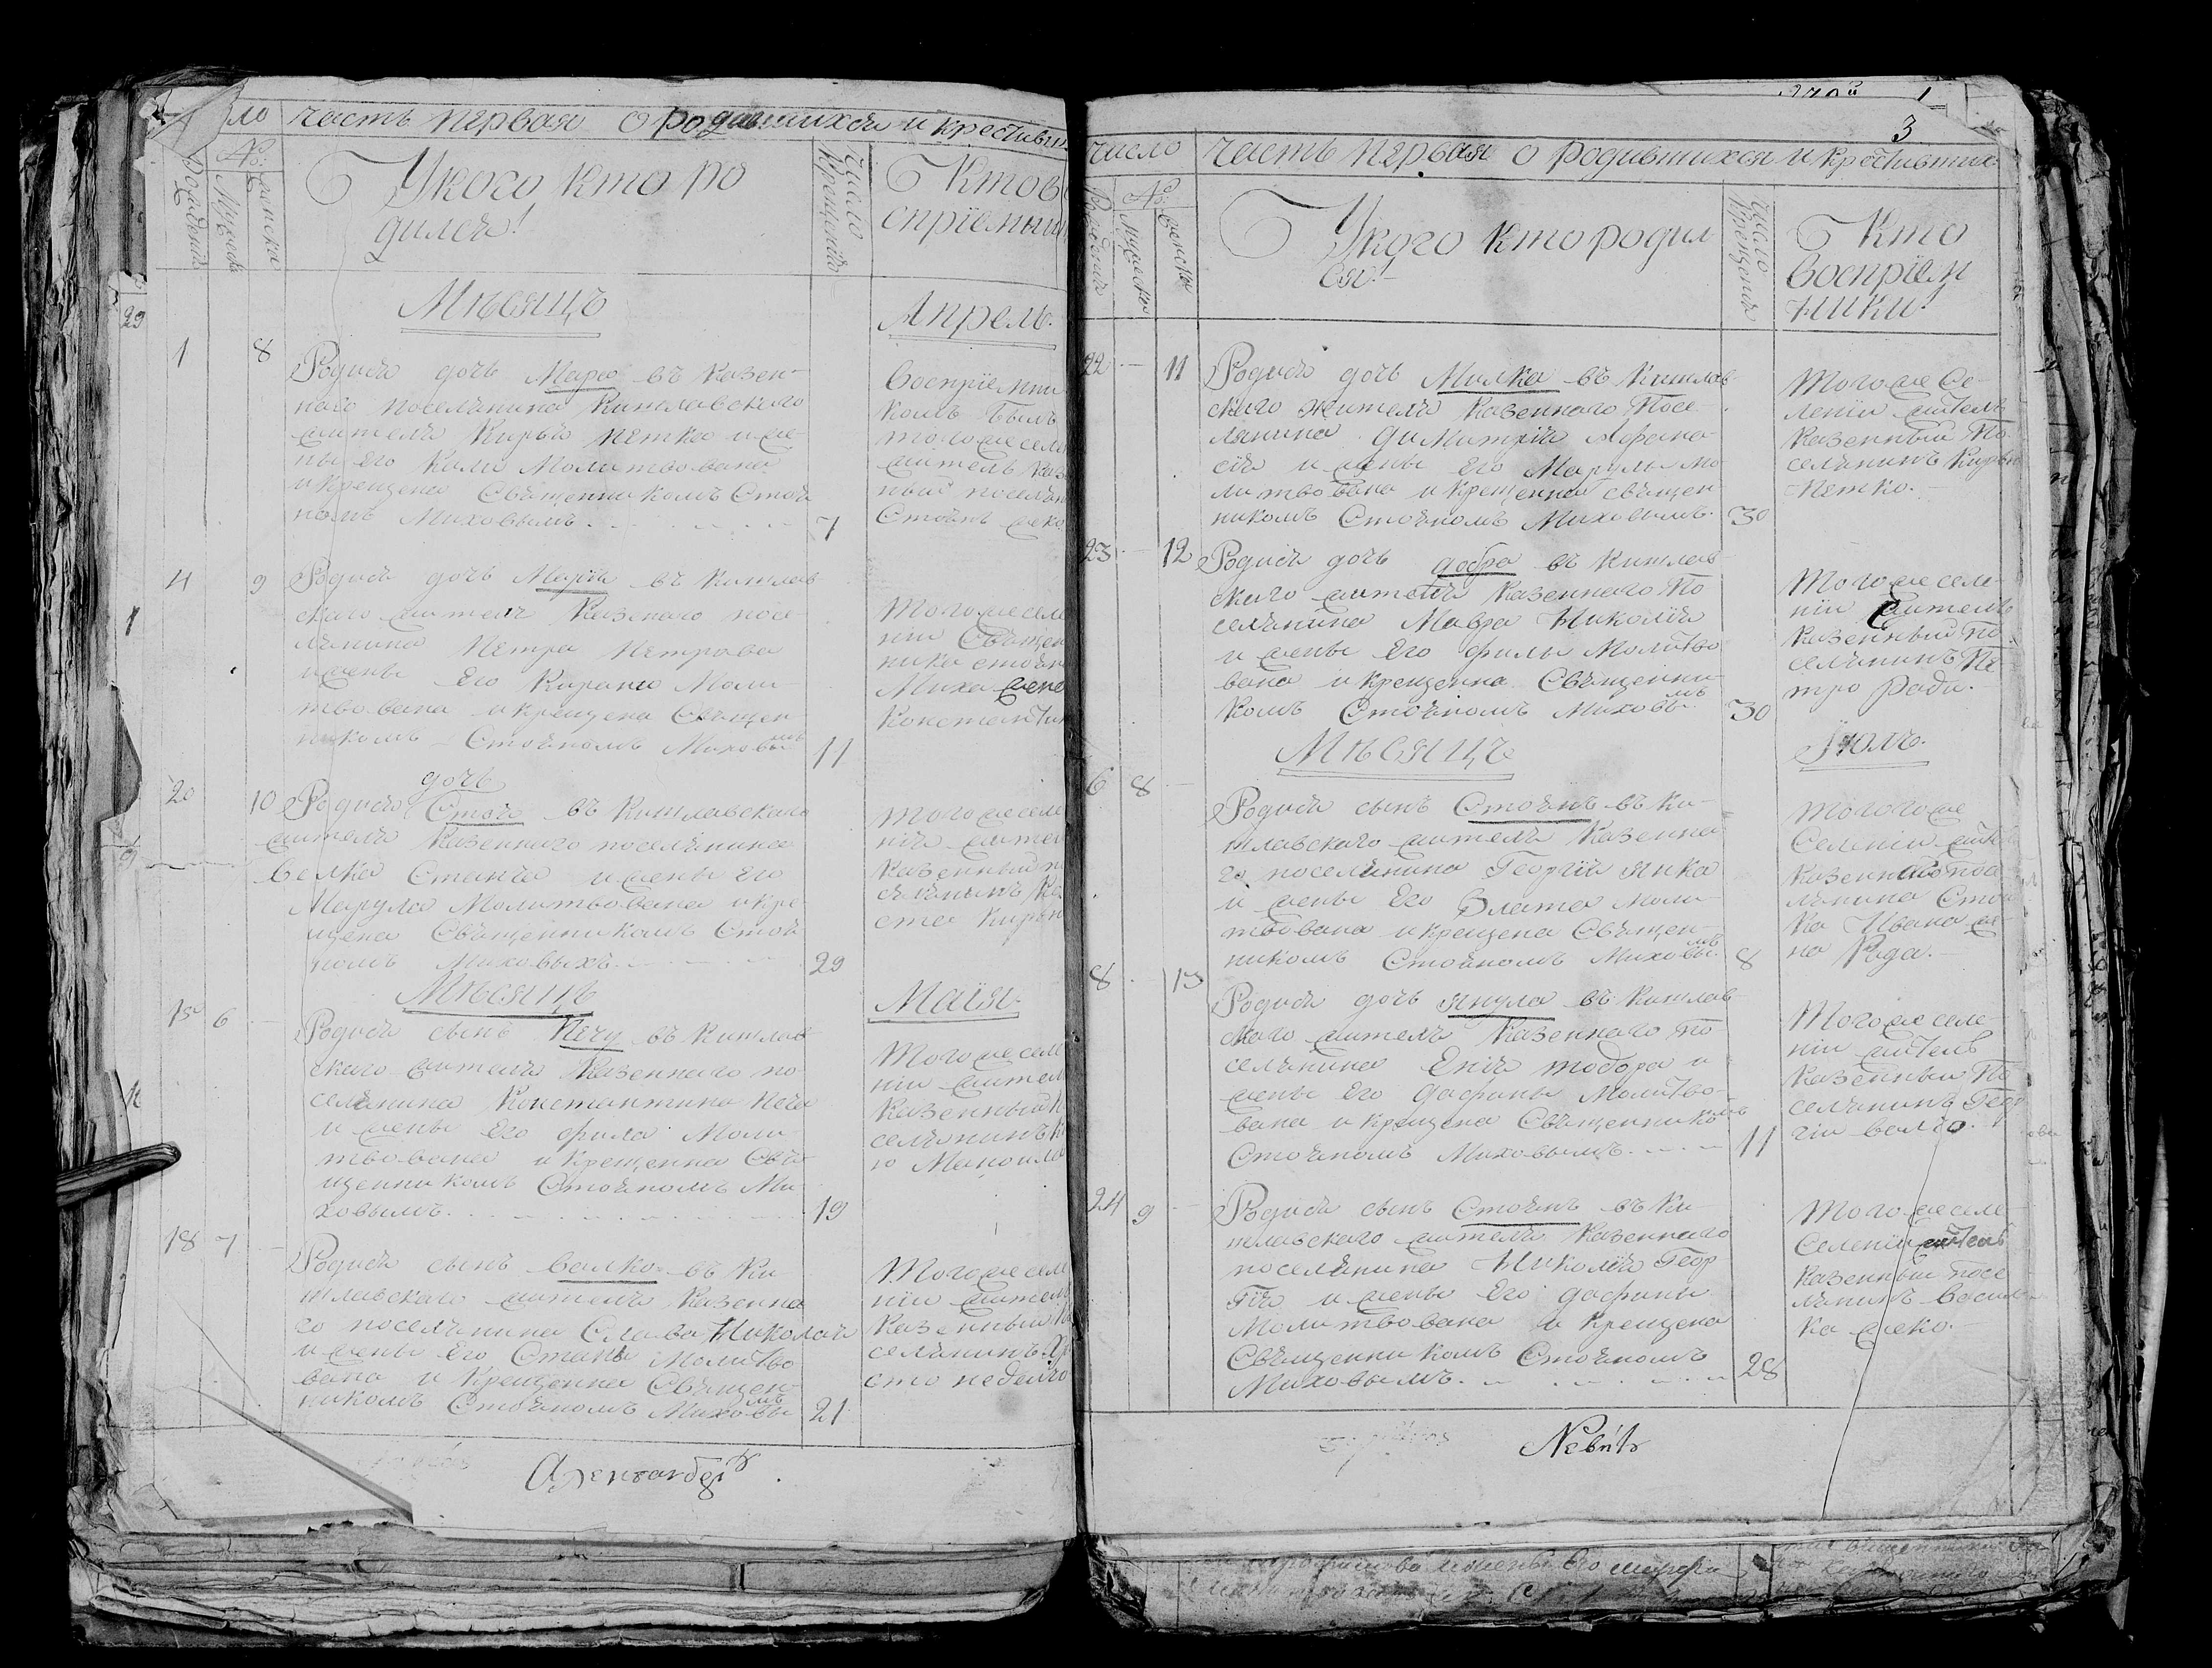 ло часть первая о родившихся и крестивши
Рожденія
№:
Мужеска
женска
У кого кто ро
дился!
Число
Крещенія
Кто в
спріемни
Мѣсяцъ
Апрель.
1 8 Родися дочь Мара въ казен-
наго поселянина Кишлавского
жителя Киръя Петко и же-
ны его Кали Молитвована
и крещена Священникомъ Стоя
номъ Миховымъ. 7
Воспріемни
комъ былъ
того же селе
житель каз
ный поселян
Стоянъ жеко
4 9 Родися дочь Марія въ Кишлав
скаго жителя Казенаго посе
лянина Петра Петрова
и жены Его Кирани Моли-
твована и крещена Священ-
никомъ Стояномъ Миховымъ 11
Того же селе
ніи Священ
ника стоян
Миха жена
Константин
дочь
20 10 Родися Стоя въ Кишлавскаго
жителя Казеннаго поселянина
Велка Станчя и жены Его
Марула Молитвована и кре
щена Священникомъ Стоя
номъ Миховыхъ. 29
Того же селе
нія жител
Казенный п
Мѣсяцъ
Маія.
15 6 Родися сынъ Печу въ Кишлав
скаго жителя Казеннаго по
селянина Константина Печа
и жены Его фила Моли-
твована и Крещенна Свя
щенникомъ Стояномъ Ми
ховымъ. 19
Того же селе
ніи жител
Казенный п
селянинъ К
ю Маноила
18 7 Родися сынъ Волко въ Ки
шлавскаго жителя Казенна
го поселянина Слава Николая
и жены Его Станы Молитво
вана и Крещенна Священ-
никомъ Стояномъ Миховымъ 21
Того же селе
ніи жител
Казенный по
селянинъ Хр
сто недялко
Александръ
3
число часть первая о родившихся и крестившихъ
Рожденія
№:
Мужеска
женска
У кого кто родил
ся!
Число
Крещенія
Кто
воспріем
ники!
22 11 Родися дочь Милка въ Кишлав
скаго жителя Казеннаго Посе
лянина Димитрія Афана-
сія и жены Его Марулы мо
литвована и Крещенна священ
никомъ Стояномъ Миховымъ. 30
Того же Се-
леніи житель
Казенный По
селянинъ Кирьи
Петко.
23 12 Родися дочь добра въ Кишлав
скаго жителя Казеннаго По
селянина Мавра Николія
и жены Его филы Молитво
вана и Крещенна Священни
комъ Стояномъ Миховымъ 30
Того же селе-
ніи житель
Казенный По
селянинъ Пе-
тро Ради.
Мѣсяцъ
Іюлъ.
6 8 Родися сынъ Стоянъ въ Ки-
шлавскаго жителя Казенна
го поселянина Георгія Янка
и жены Его Злата моли-
твована и крещена Священ-
никомъ Стояномъ Миховымъ 8
Селеніи жите
лянина Стои
ка Ивана же
на Рада.
8 13 Родися дочь Янула въ Кишлав
скаго жителя Казеннаго По-
селянина Енія тодора и
жены Его Дафины Молитво-
вана и Крещена Священникомъ
Стояномъ Миховымъ. 11
Того же селе-
ніи житель
Казенный По
селянинъ Геор
гіи валчо.
24 9 Родися сынъ Стоянъ въ Ки-
шлавскаго жителя Казеннаго
поселянина Николія Геор
гія и жены Его дафины
Молитвована и Крещена
Священникомъ Стояномъ
Миховымъ. 28
Того же селе
Селеніи житель
Казенный посе
лянинъ Васил
ка жеко.
Nевитъ